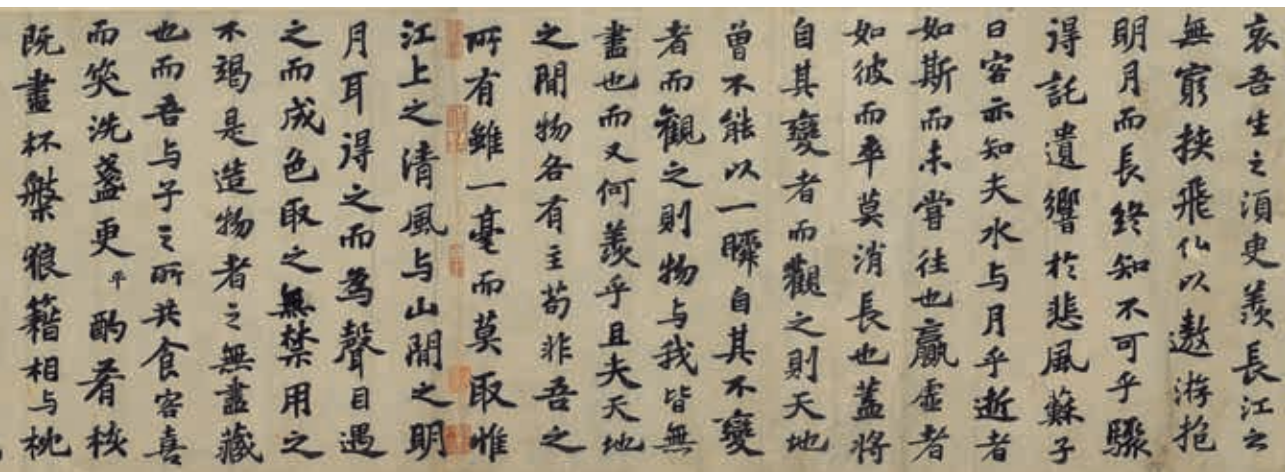 哀吾生之須臾羨長江之
無窮挾飛仙以遨游抱
明月而長終知不可乎驟
得託遺響於悲風蘇子
曰客亦知夫水与月乎逝者
如斯而未嘗往也贏虛者
如彼而卒莫消長也蓋將
自其變者而觀之則天地
曾不能以一瞬自其不變
者而觀之則物与我皆無
盡也而又何羨乎且夫天地
之間物各有主苟非吾之
所有雖一毫而莫取惟
江上之清風与山間之明
月耳得之而為聲目遇
之而成色取之無禁用之
不竭是造物者之無盡藏
也而吾与子之所共食客喜
而笑洗盞更平酌肴核
既盡杯槃狼籍相与枕